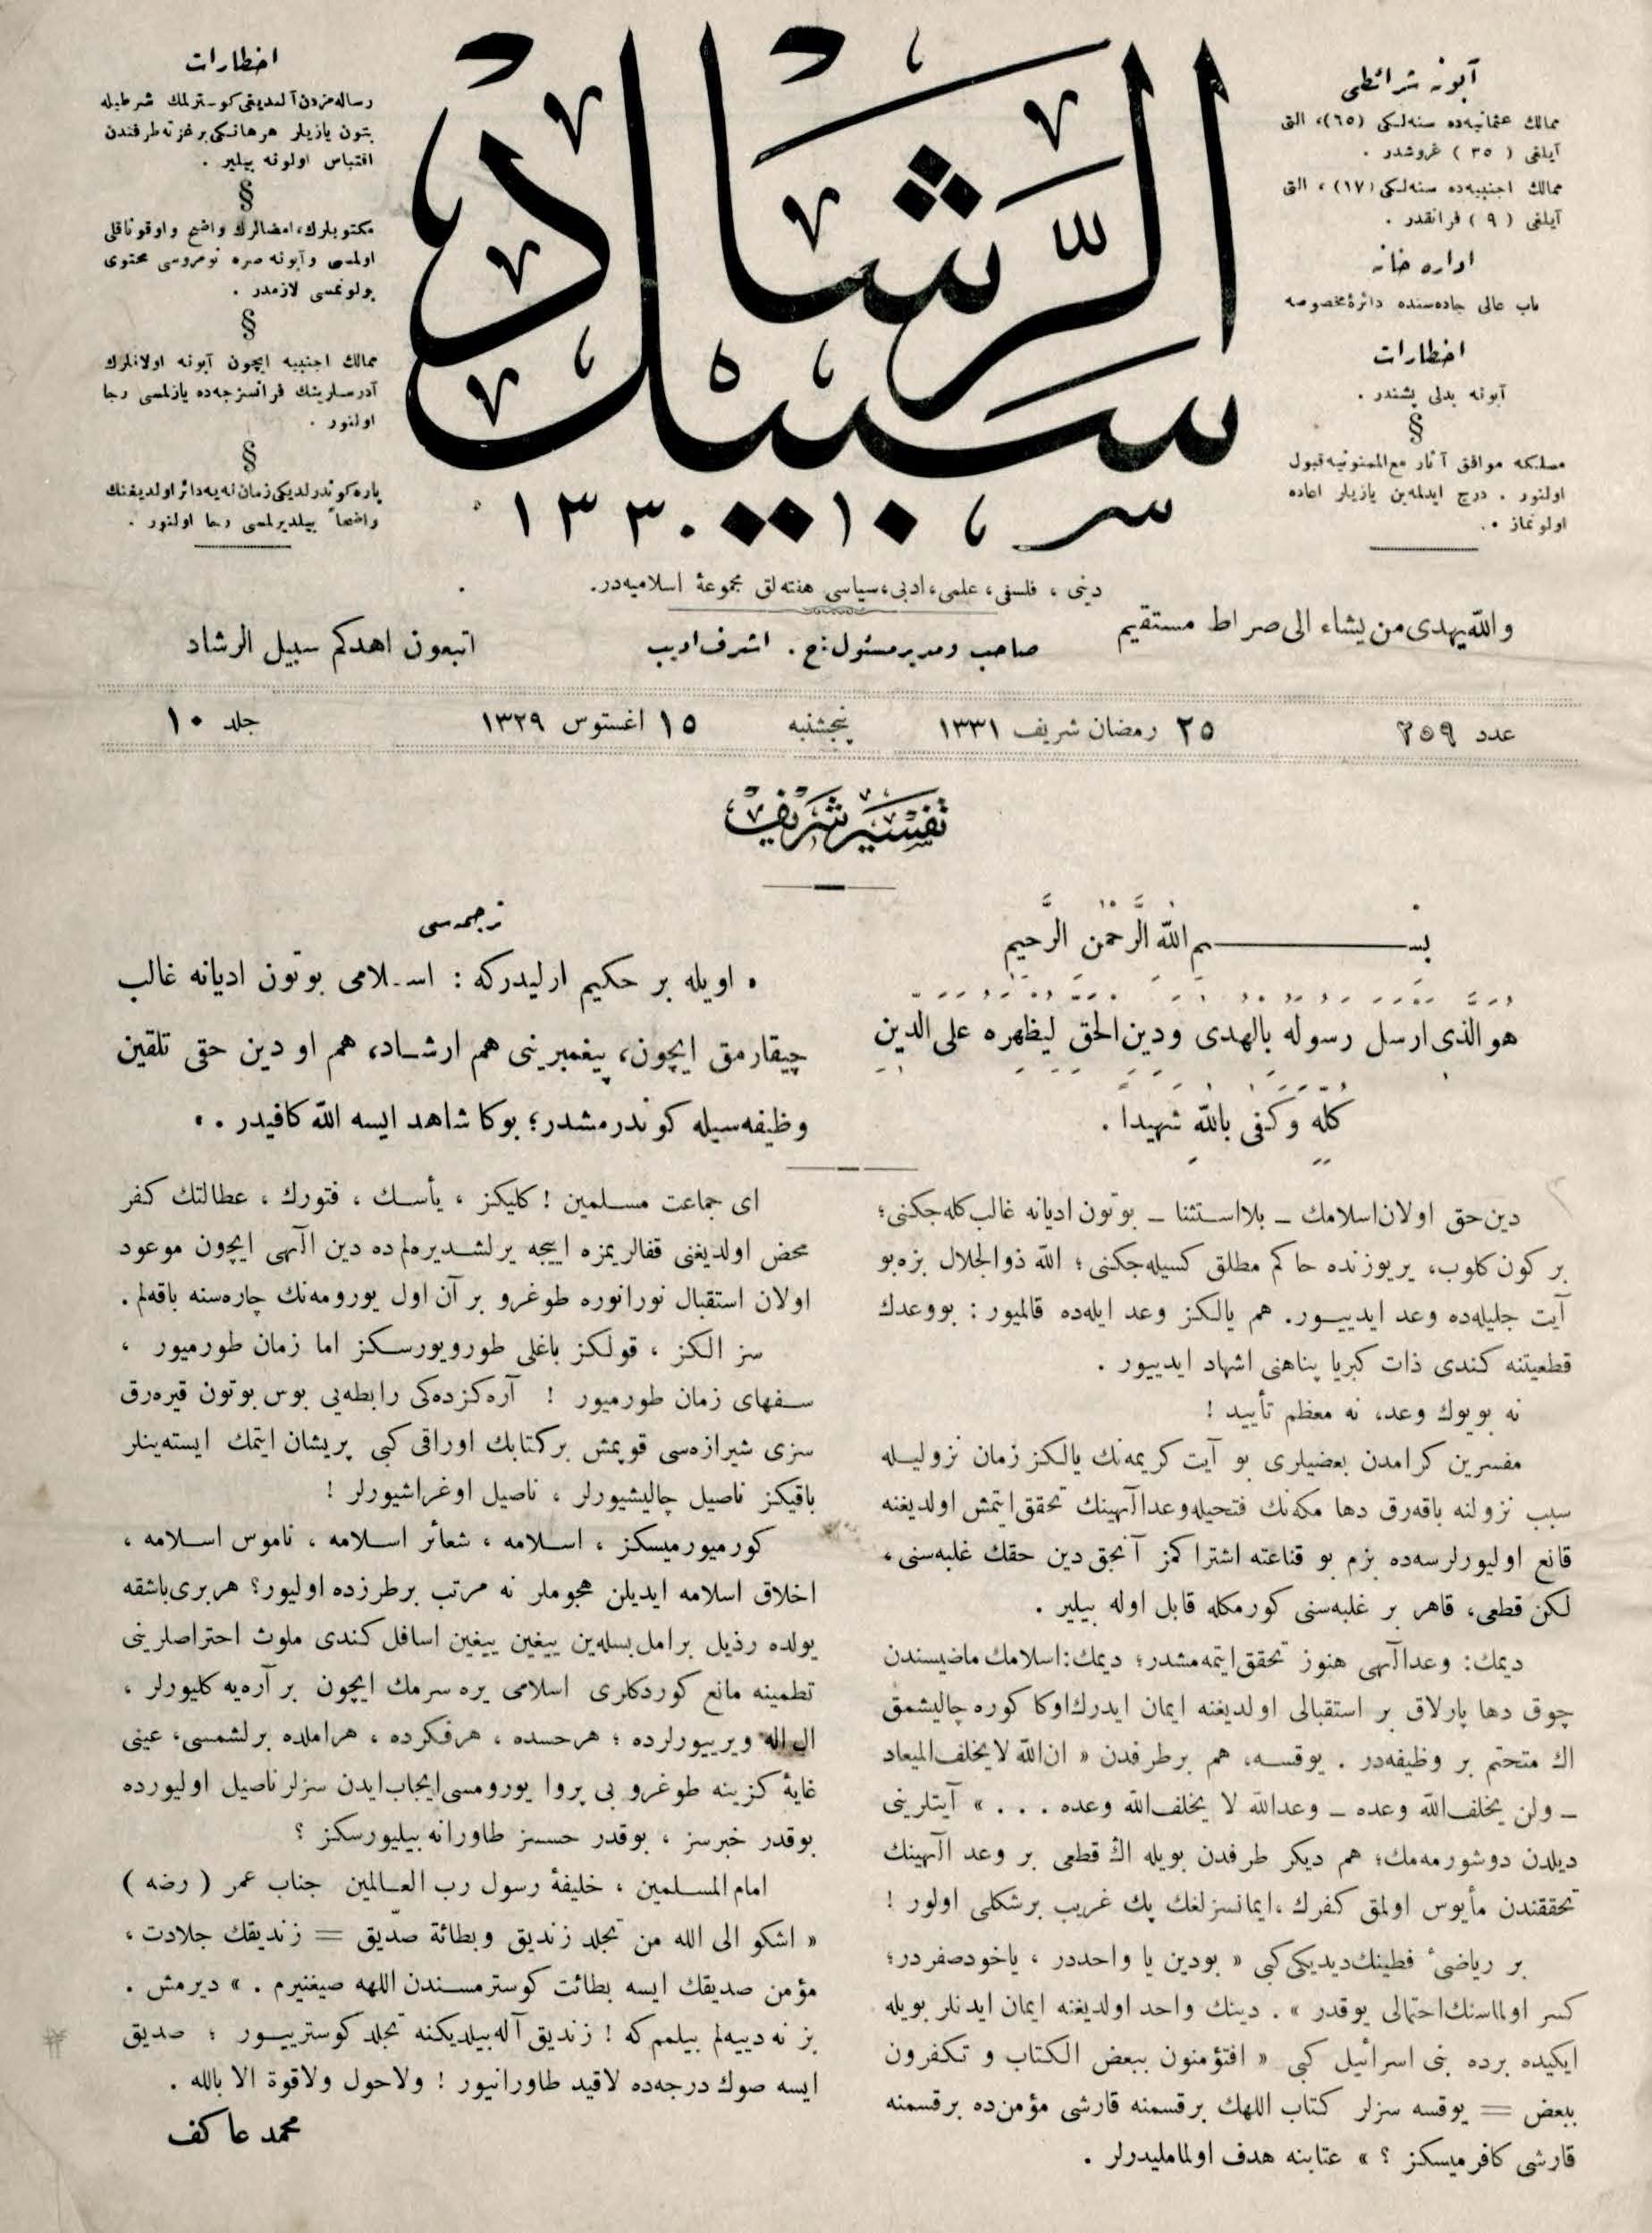 آبونه شرائطی
ممالك عثمانیه‌ده سنه‌لكی (٦٥)، التی
آیلغی ( ٣٥ ) غروشدر .
ممالك اجنبیه‌ده سنه‌لكی (١٧)، التی
آیلغی ( ٩ ) فرانقدر .
اداره خانه
باب عالی جاده‌سنده دائرۀ مخصوصه
اخطارات
آبونه بدلی پشندر .
§
مسلكه موافق آثار مع الممنونیه قبول
اولنور . درج ایدلمه‌ین یازیلر اعاده
اولونماز .
سبیل الرشاد
١٣٣٠
اخطارات
رساله‌مزدن آلندیغی كوسترلمك شرطیله
بتون یازیلر هرهانكی بر غزته طرفندن
اقتباس اولونه بیلیر .
§
مكتوبلرك، امضالرك واضح و اوقوناقلی
اولمسی و آبونه صره نومروسی محتوی
بولونمسی لازمدر .
§
ممالك اجنبیه ایچون آبونه اولانلرك
آدرسلرینك فرانسزجه‌ده یازلمسی رجا
اولنور .
§
پاره كوندرلدیكی زمان نه‌یه دائر اولدیغنك
واضحاً بیلدیرلمسی رجا اولنور .
دینی ، فلسفی ، علمی ، ادبی ، سیاسی هفته‌لق مجموعۀ اسلامیه‌در.
والله یهدی من یشاء الی صراط مستقیم
صاحب و مدیر مسئول : ح . اشرف ادیب
اتبعون اهدكم سبیل الرشاد
عدد ٢٥٩
٢٥ رمضان شریف ١٣٣١
پنجشنبه
١٥ اغستوس ١٣٢٩
جلد ١٠
تفسیر شریف
بسم الله الرحمن الرحیم
هو الذی ارسل رسوله بالهدی و دین الحق لیظهره علی الدین
كلّهِ وَكفی باللهِ شهیداً .
دین حق اولان اسلامك ـ بلااستثنا ـ بوتون ادیانه غالب كله‌جكنی؛
بر كون كلوب، یریوزنده حاكم مطلق كسیله‌جكنی؛ الله ذوالجلال بزه بو
آیت جلیله‌ده وعد ایدییور. هم یالكز وعد ایله‌ده قالمیور : بو وعدك
قطعیتنه كندی ذات كبریا پناهنی اشهاد ایدییور .
نه بویوك وعد، نه معظم تأیید !
مفسرین كرامدن بعضیلری بو آیت كریمه‌نك یالكز زمان نزولیله
سبب نزولنه باقه‌رق دها مكه‌نك فتحیله وعد الٓهینك تحقق ایتمش اولدیغنه
قانع اولیورلرسه‌ده بزم بو قناعته اشتراكمز آنجق دین حقك غلبه‌سنی،
لكن قطعی، قاهر بر غلبه‌سنی كورمكله قابل اوله بیلیر .
دیمك: وعد الٓهی هنوز تحقق ایتمه‌مشدر؛ دیمك: اسلامك ماضیسندن
چوق دها پارلاق بر استقبالی اولدیغنه ایمان ایدرك اوكا كوره چالیشمق
اك متحتم بر وظیفه‌در . یوقسه، هم بر طرفدن « ان الله لا یخلف المیعاد
ـ ولن یخلف الله وعده ـ وعد الله لا یخلف الله وعده . . . » آیتلرینی
دیلدن دوشورمه‌مك؛ هم دیكر طرفدن بویله اڭ قطعی بر وعد الٓهینك
تحققندن مأیوس اولمق كفرك، ایمانسزلغك پك غریب بر شكلی اولور !
بر ریاضیٔ فطینك دیدیكی كبی « بو دین یا واحددر ، یاخود صفردر؛
كسر اولماسنك احتمالی یوقدر » . دینك واحد اولدیغنه ایمان ایدنلر بویله
ایكیده برده بنی اسرائیل كبی « افتؤمنون ببعض الكتاب و تكفرون
ببعض = یوقسه سزلر كتاب اللهك بر قسمنه قارشی مؤمن‌ده بر قسمنه
قارشی كافرمیسكز ؟ » عتابنه هدف اولماملیدرلر .
ترجمه‌سی
« اویله بر حكیم ازلیدركه : اسلامی بوتون ادیانه غالب
چیقارمق ایچون، پیغمبرینی هم ارشاد، هم او دین حقی تلقین
وظیفه‌سیله كوندرمشدر؛ بوكا شاهد ایسه الله كافیدر . »
ای جماعت مسلمین ! كلیكز ، یأسك ، فتورك ، عطالتك كفر
محض اولدیغنی قفالریمزه اییجه یرلشدیره‌لم‌ده دین الٓهی ایچون موعود
اولان استقبال نورانوره طوغرو بر آن اول یورومه‌نك چاره‌سنه باقه‌لم .
سز الكز ، قولكز باغلی طورویورسكز اما زمان طورمیور ،
سفهای زمان طورمیور ! آره‌كزده‌كی رابطه‌یی بوس بوتون قیره‌رق
سزی شیرازه‌سی قوپمش بر كتابك اوراقی كبی پریشان ایتمك ایسته‌ینلر
باقیكز ناصیل چالیشیورلر ، ناصیل اوغراشیورلر !
كورمیورمیسكز ، اسلامه ، شعائر اسلامه ، ناموس اسلامه ،
اخلاق اسلامه ایدیلن هجوملر نه مرتب بر طرزده اولیور؟ هر بری باشقه
یولده رذیل بر امل بسله‌ین ییغین ییغین اسافل كندی ملوث احتراصلرینی
تطمینه مانع كوردكلری اسلامی یره سرمك ایچون بر آره‌یه كلیورلر ،
ال اله ویرییورلرده ؛ هر حسده ، هر فكرده ، هر املده برلشمسی، عینی
غایۀ كزینه طوغرو بی پروا یورومسی ایجاب ایدن سزلر ناصیل اولیورده
بوقدر خبرسز ، بوقدر حسسز طاورانه بیلیورسكز ؟
امام المسلمین ، خلیفۀ رسول رب العالمین جناب عمر ( رضه )
« اشكو الی الله من تجلد زندیق و بطائة صدّیق = زندیقك جلادت ،
مؤمن صدیقك ایسه بطائت كوسترمسندن اللهه صیغنیرم . » دیرمش .
بز نه دییه‌لم بیلمم كه ! زندیق آله بیلدیكنه تجلد كوسترییور ؛ صدیق
ایسه صوك درجه‌ده لاقید طاورانیور ! ولا حول ولا قوة الا بالله .
محمد عاكف